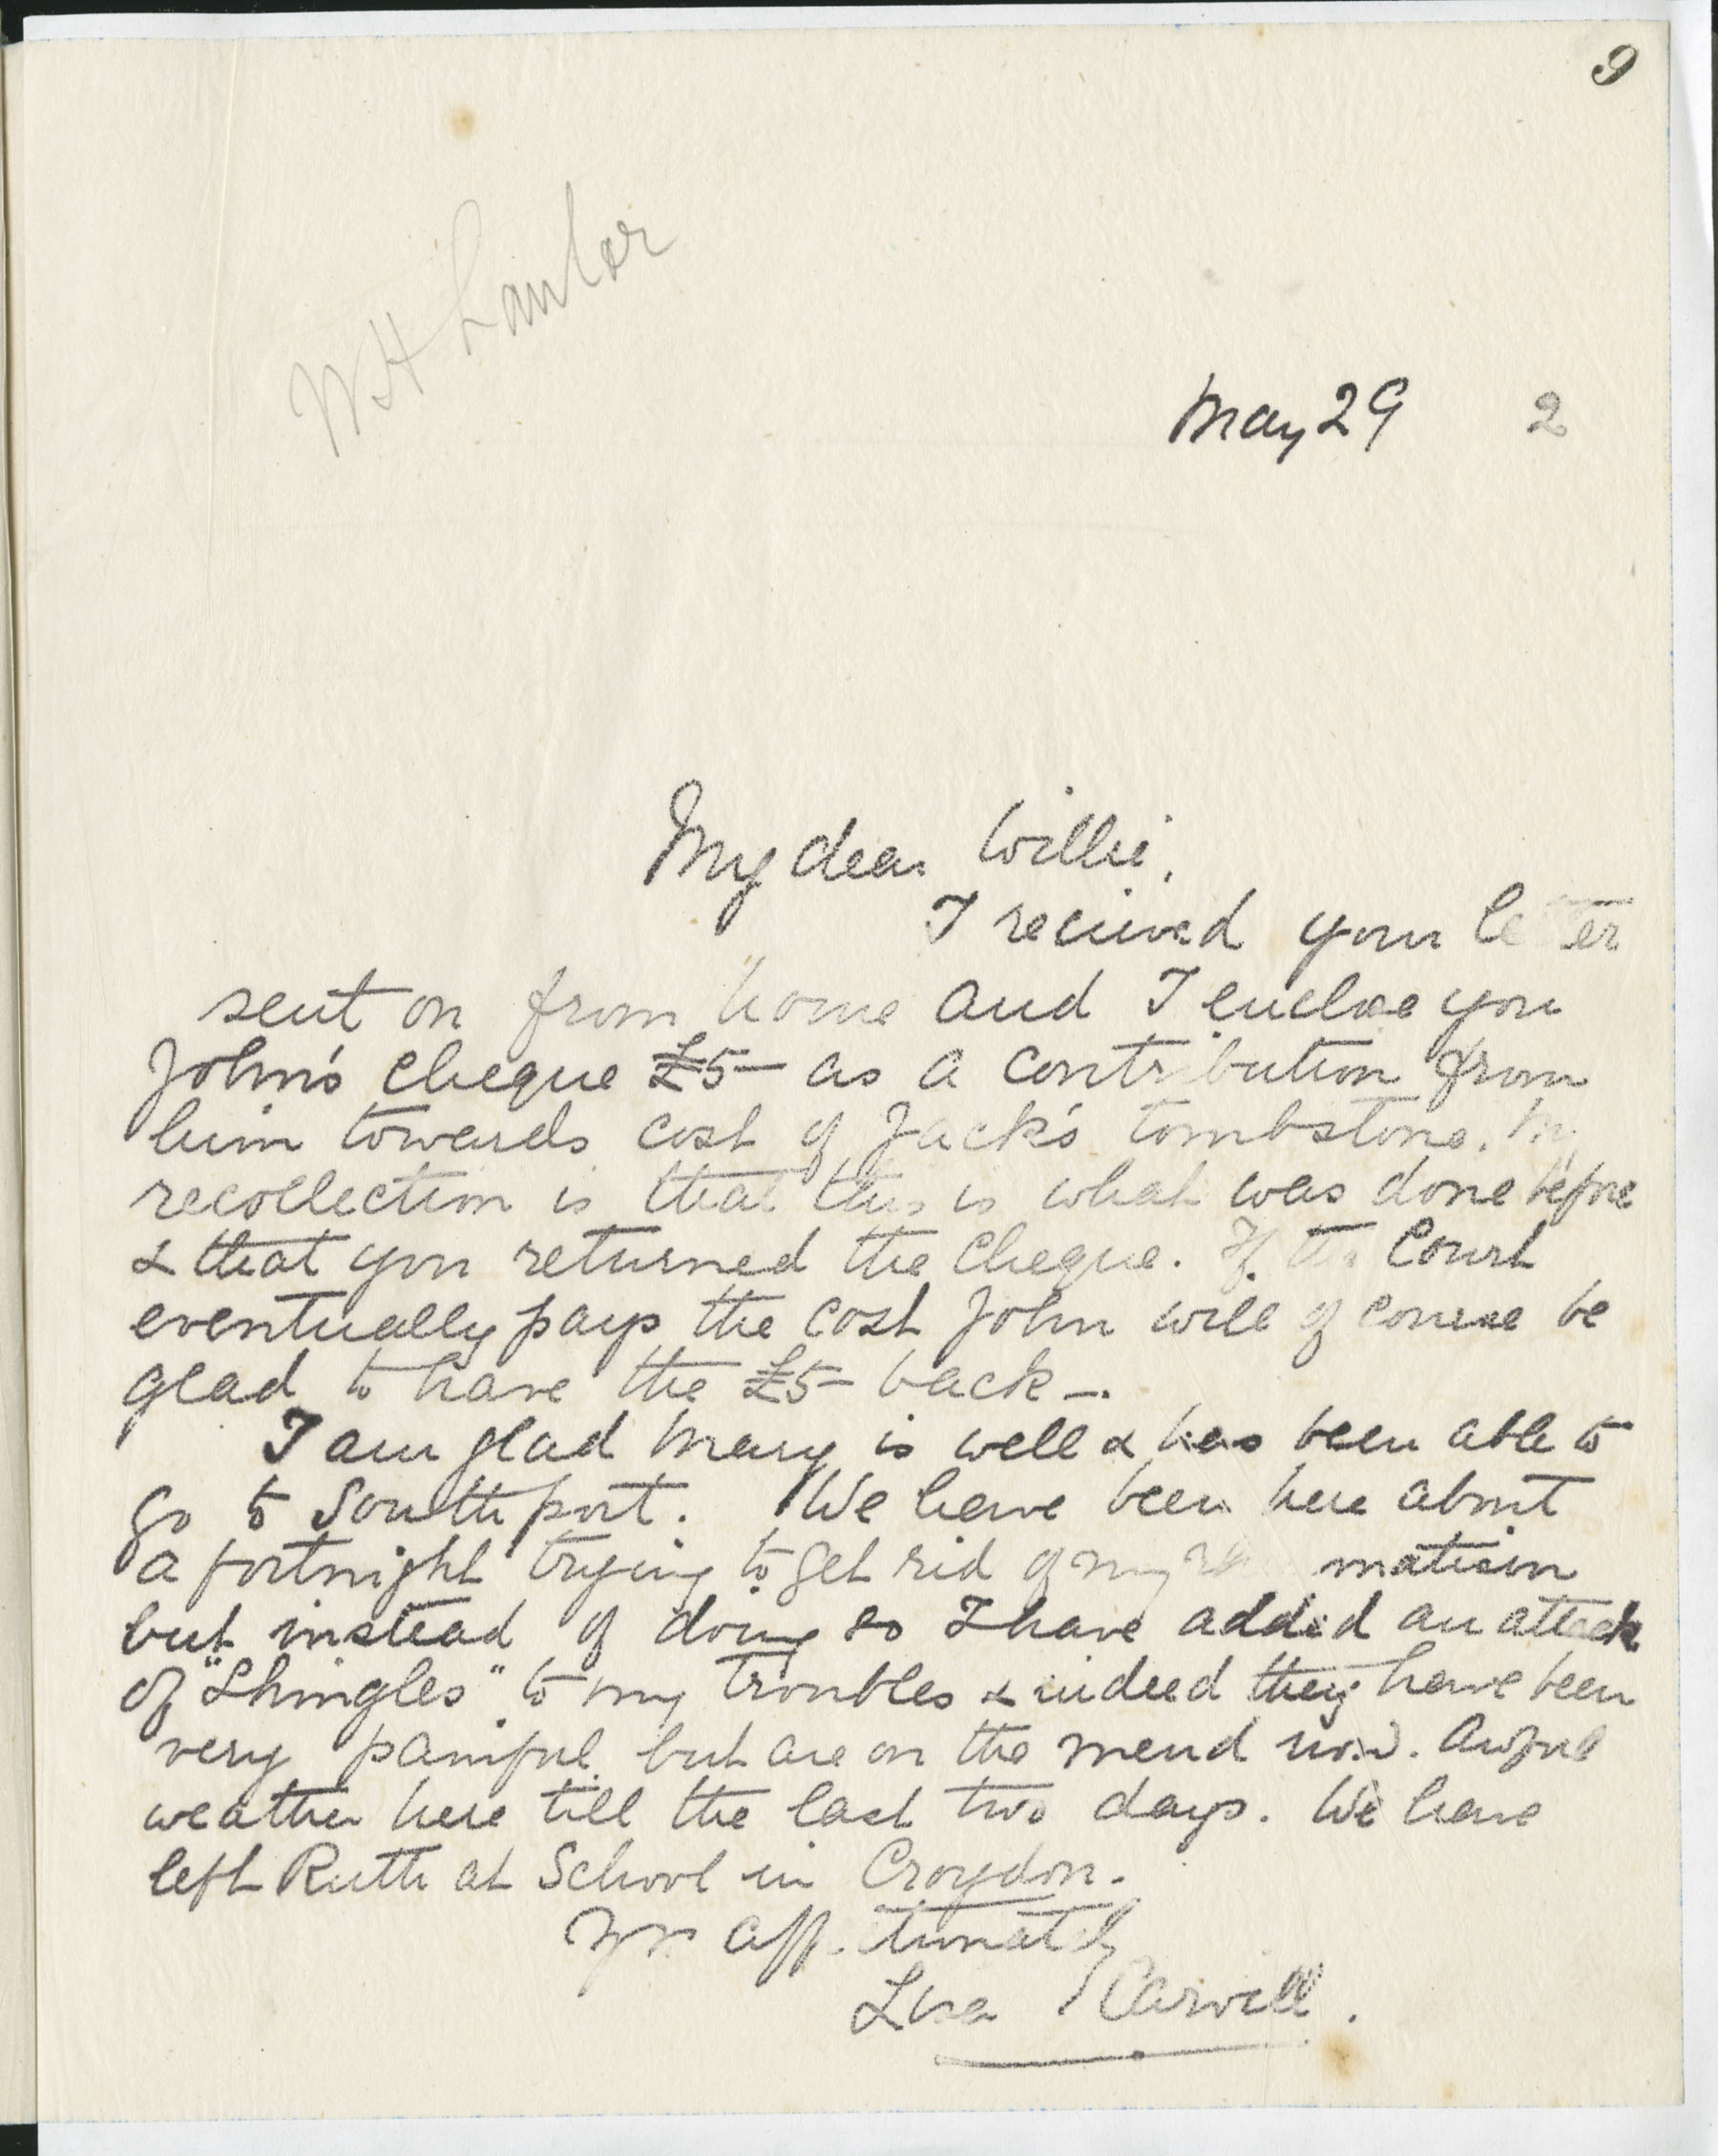 9
W H Lawlor
May 29 2
My dear Willie,
I received your letter
sent on from home and I enclose you
John's cheque £5- as a contribution from
him towards cost of Jack's tombstone. My
recollection is that this is what was done before
& that you returned the cheque. If the Court
eventually pays the cost John will of course be
glad to have the £5- back -.
I am glad Mary is well & has been able to
go to Southport. We have been here about
a fortnight trying to get rid of my matism
but instead of doing so I have added an attack
of "Shingles" to my troubles & indeed they have been
very painful but are on the mend now. Awful
weather here till the last two days. We have
left Ruth at School in Croydon.
Yrs aff. tionately
Carvill.